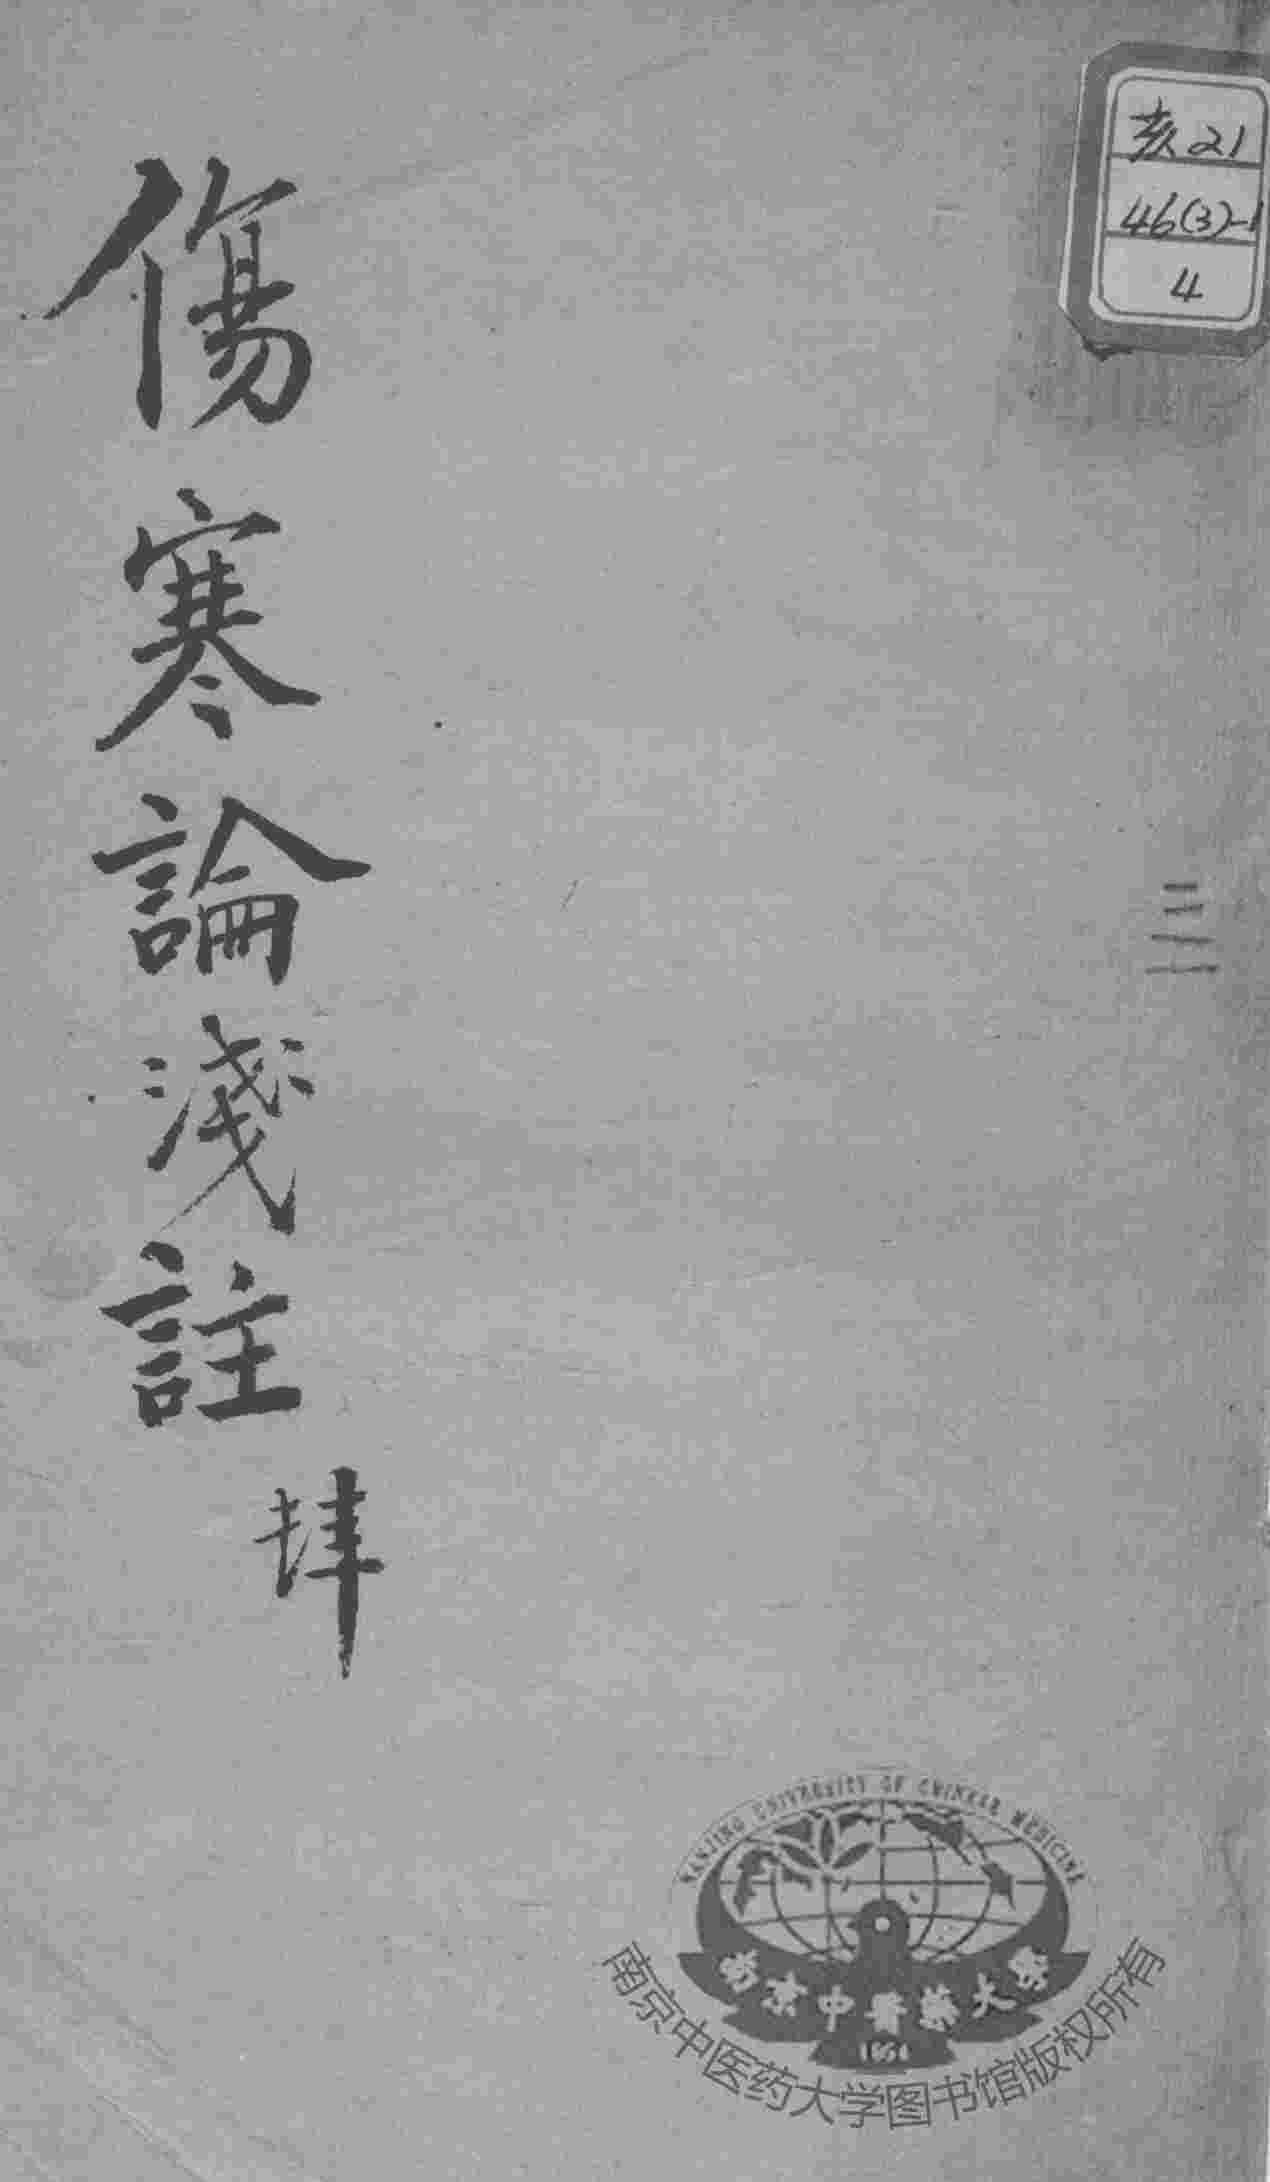 亥21
46(3)-1
4
傷寒論淺註
肆
NANJING UNIVERSITY OF CHINESE MEDICINE
南京中醫藥大學
1954
南京中医药大学图书馆版权所有